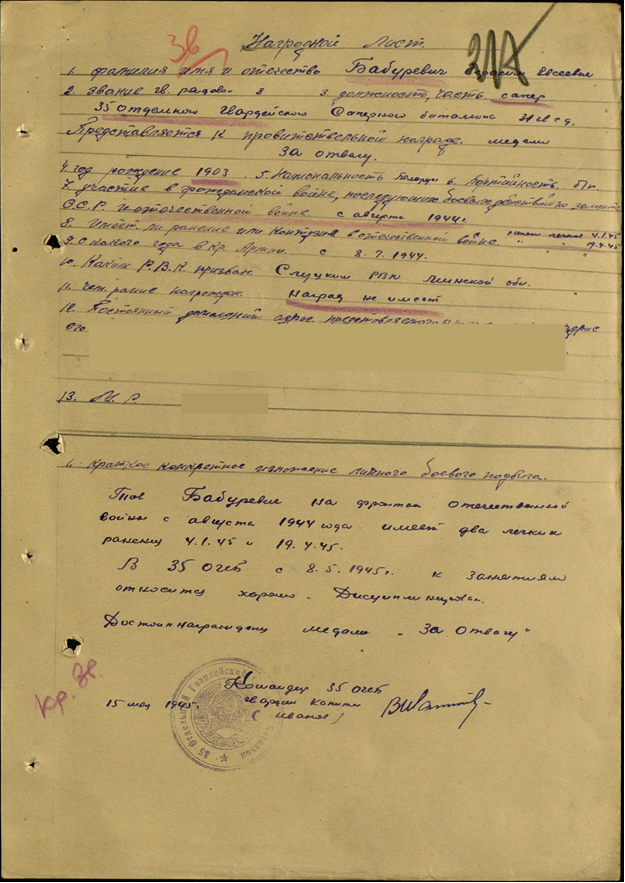 Зв
Наградной Лист.
1. Фамилия имя и отчество Бабуревич Евсеевич
2. звание гв. рядовой 3 должность, часть сапер
35 Отдельного Гвардейского Саперного баталиона
Представляется к правительственной награде медали
За отвагу.
4. год рождение 1903. 5. Национальность 6. Партийность б/п
7. участие в гражданской войне, последующие боевые действия по защите
С.С.Р. и отечественной войне с августа 1944 г.
8. Имеет ли ранение или контузия в отечественной войне 4.1.45
9. С какого года в Кр. Армии. с 8.7.1944. 19.4.45
10. Каким Р.В.К. призван. Слуцким РВК Минской обл.
11. чем ранее награжден. наград не имеет
12. Постоянный домашний адрес представляемого
его.
13.
1. Краткое конкретное изложение личного боевого подвига.
Тов Бабуревич на фронтах отечественной
войны с августа 1944 года имеет два легких
ранения 4.1.45 и 19.4.45.
В 35 ОГСБ с 8.5.1945 г. к занятиям
относится хорошо. Дисциплинирован.
Достоин награждению медали „За Отвагу“
Командир 35 ОГСБ
Кр. Зв.
15 мая 1945 г. гвардии капитан
(Иванов)
35 Отдельный Гвардейский